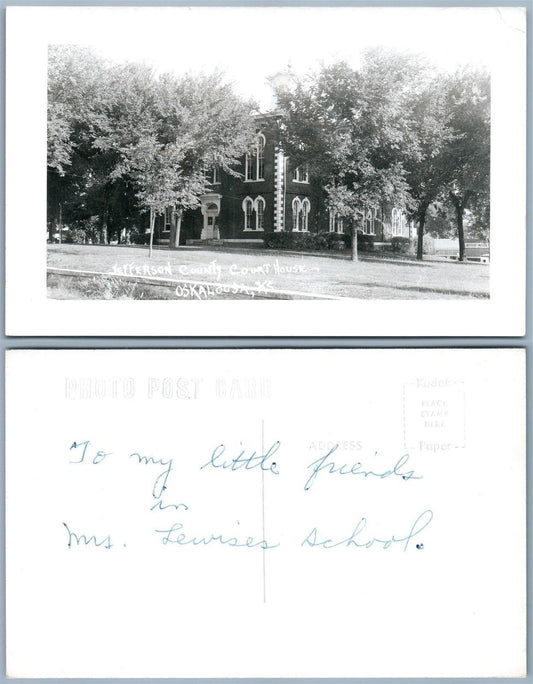 JEFFERSON COUNTY COURT HOUSE
OSKALOOSA, KS
PHOTO POST CARD
Kodak
PLACE
STAMP
HERE
Paper
ADDRESS
To my little friends
in
Mrs. Lewises school.